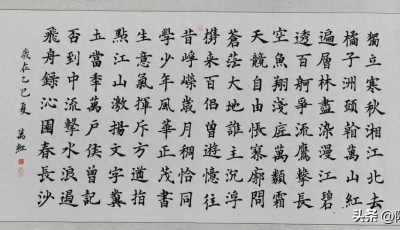 獨立寒秋湘江北去
橘子洲頭看萬山紅
遍層林盡染漫江碧
透百舸爭流鷹擊長
空魚翔淺底萬類霜
天競自由悵寥廓問
蒼茫大地誰主沉浮
携来百侶曾遊憶往
昔崢嶸歲月稠恰同
學少年風華正茂書
生意氣揮斥方遒指
點江山激揚文字糞
土當年萬戶侯曾記
否到中流擊水浪遏
飛舟錄沁園春長沙
歲在己巳夏
头条 @